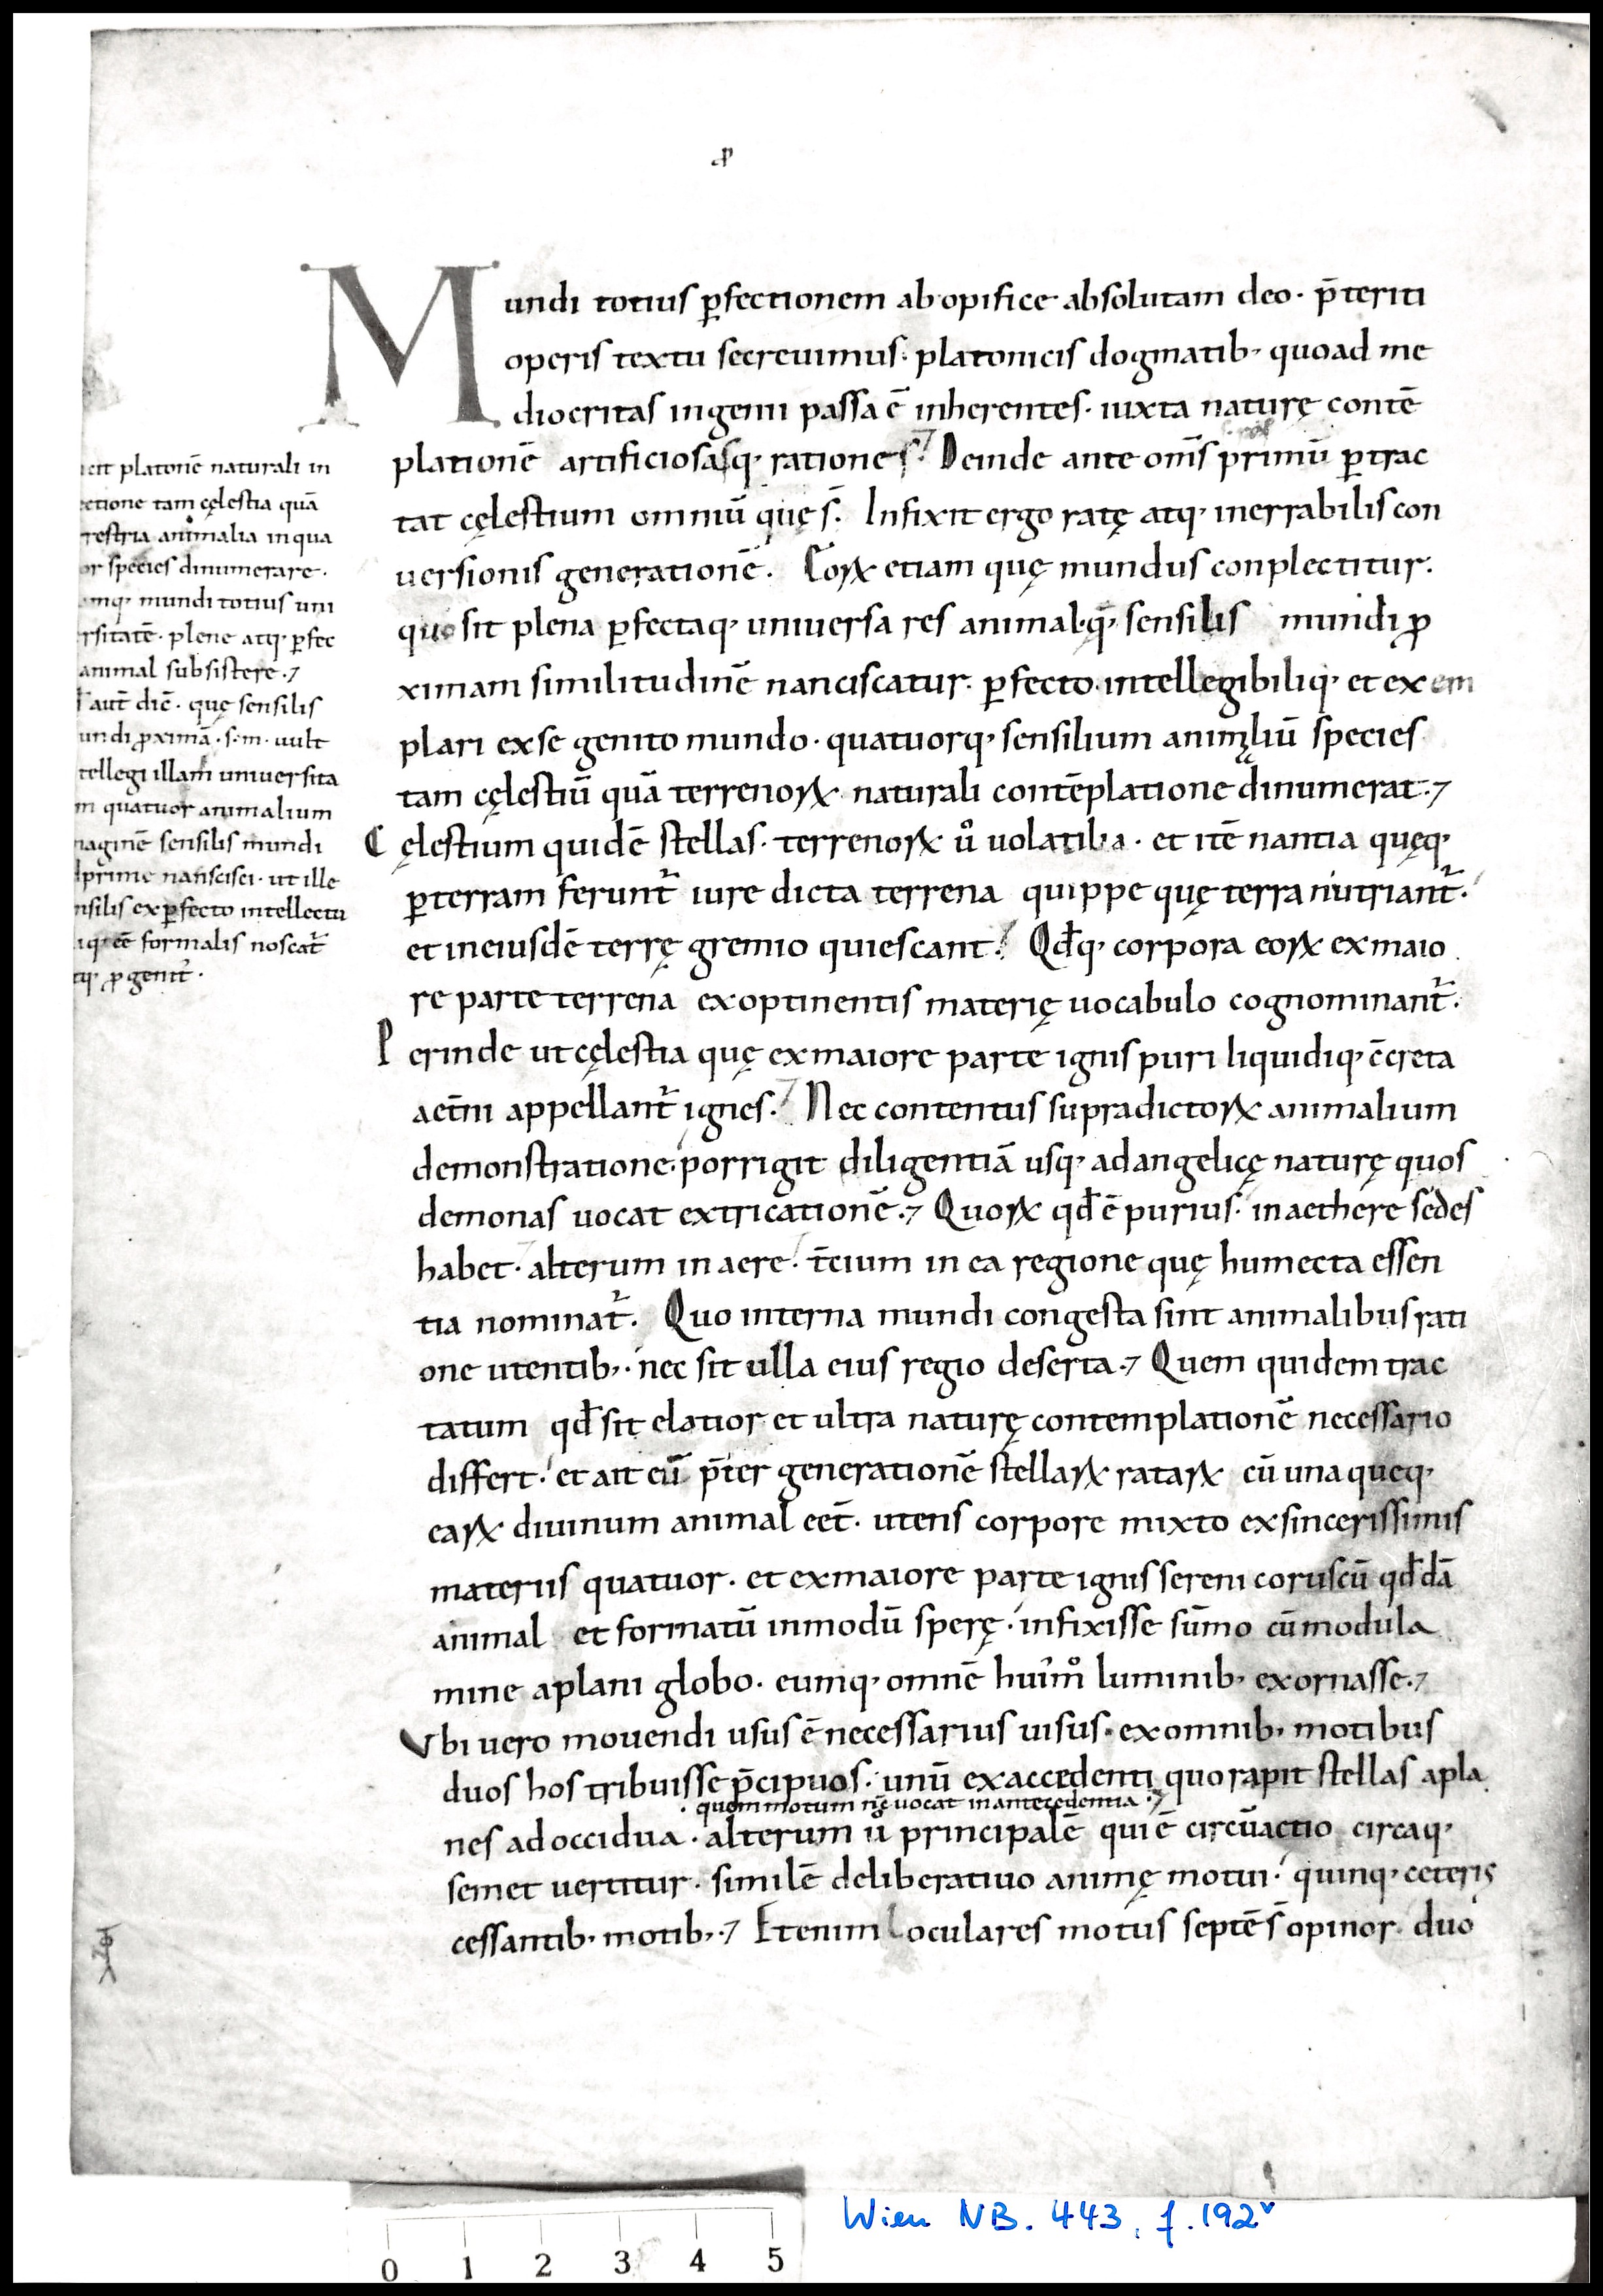 ꝓ
Mundi totius ꝑfectionem ab opifice absolutam deo· p̄teriti
operis textu secreuimus· platonicis dogmatib; quoad me
diocritas ingenii passa ē inherentes· iuxta naturę contē
platione̅ artificiosāsq; rationes· Deinde ante om̄s primū ꝑtrac
tat cęlestium omniū quę s̄. Infixit ergo ratę atq; inerrabilis con
uersionis generationē. Eoꝝ etiam quę mundus conplectitur.
quo sit plena ꝑfectaq; uniuersa res animal·q̄; sensilis mundi ꝓ
ximam similitudinē nanciscatur· ꝑfecto· intellegibiliq; et exem
plari ex se genito mundo· quatuorq; sensilium animaliū species
tam cęlestiū quā terrenoꝝ naturali contēplatione dinumerat·
Cęlestium quidē stellas· terrenoꝝ ů uolatilia· et itē nantia quęq;
ꝑ terram ferunt᷑ iure dicta terrena quippe quę terra nutriant᷑.
et in eiusdē terrę gremio quiescant· Qđq; corpora eoꝝ ex maio
re parte terrena ex optinentis materię uocabulo cognominant᷑.
Perinde ut cęlestia quę ex maiore parte ignis puri liquidiq; c̄creta
aet̄ni appellant᷑ ignes· Nec contentus supradictoꝝ animalium
demonstratione· porrigit diligentiā usq; ad angelicę naturę quos
demonas uocat extricationē· Quoꝝ qđ ē purius· in aethere sedes
habet· alterum in aere· t̄cium in ea regione quę humecta essen
tia nominat᷑. Quo interna mundi congesta sint animalibus rati
one utentib;· nec sit ulla eius regio deserta· Quem quidem trac
tatum qđ sit elatior et ultra naturę contemplationē necessario
differt· et ait eū p̄ter generationē stellaꝝ rataꝝ cū una queq;
eaꝝ diuinum animal eet̄· utens corpore mixto ex sincerissimis
materiis quatuor· et ex maiore parte ignis sereni coruscū qđdā
animal et formatū in modū sperę· infixisse sūmo cū modula
mine aplani globo· eumq; omnē hui᷑mͦ luminib; exornasse·
Vbi uero mouendi usus ē necessarius uisus· ex omnib; motibus
duos hos tribuisse p̄cipuos· unū ex accedenti quo rapit stellas apla
· quem motum n̄c uocat in antecedentia·
nes ad occidua· alterum ů principalē qui ē circūactio circaq;
semet uertitur· similē deliberatiuo animę motui· quinq; ceteris
cessantib; motib;· Etenim loculares motus septē s̄ opinor· duo
icit platonē naturali in
ectione tam cęlestia quā
restria animalia in qua
or species dinumerare·
mq; mundi totius uni
rsitatē· plene atq; ꝑfec
animal subsistere·
aut̄ dic̄· quę sensilis
undi ꝓximā· s·m· uult
tellegi illam uniuersita
m quatuor animalium
maginē sensilis mundi
prime nanscisci· ut ille
nsilis ex ꝑfecto intellectu
iq; eē formalis noscat᷑
tq; ꝓgenit᷑·
Wien NB. 443, f. 192ᵛ
0 1 2 3 4 5